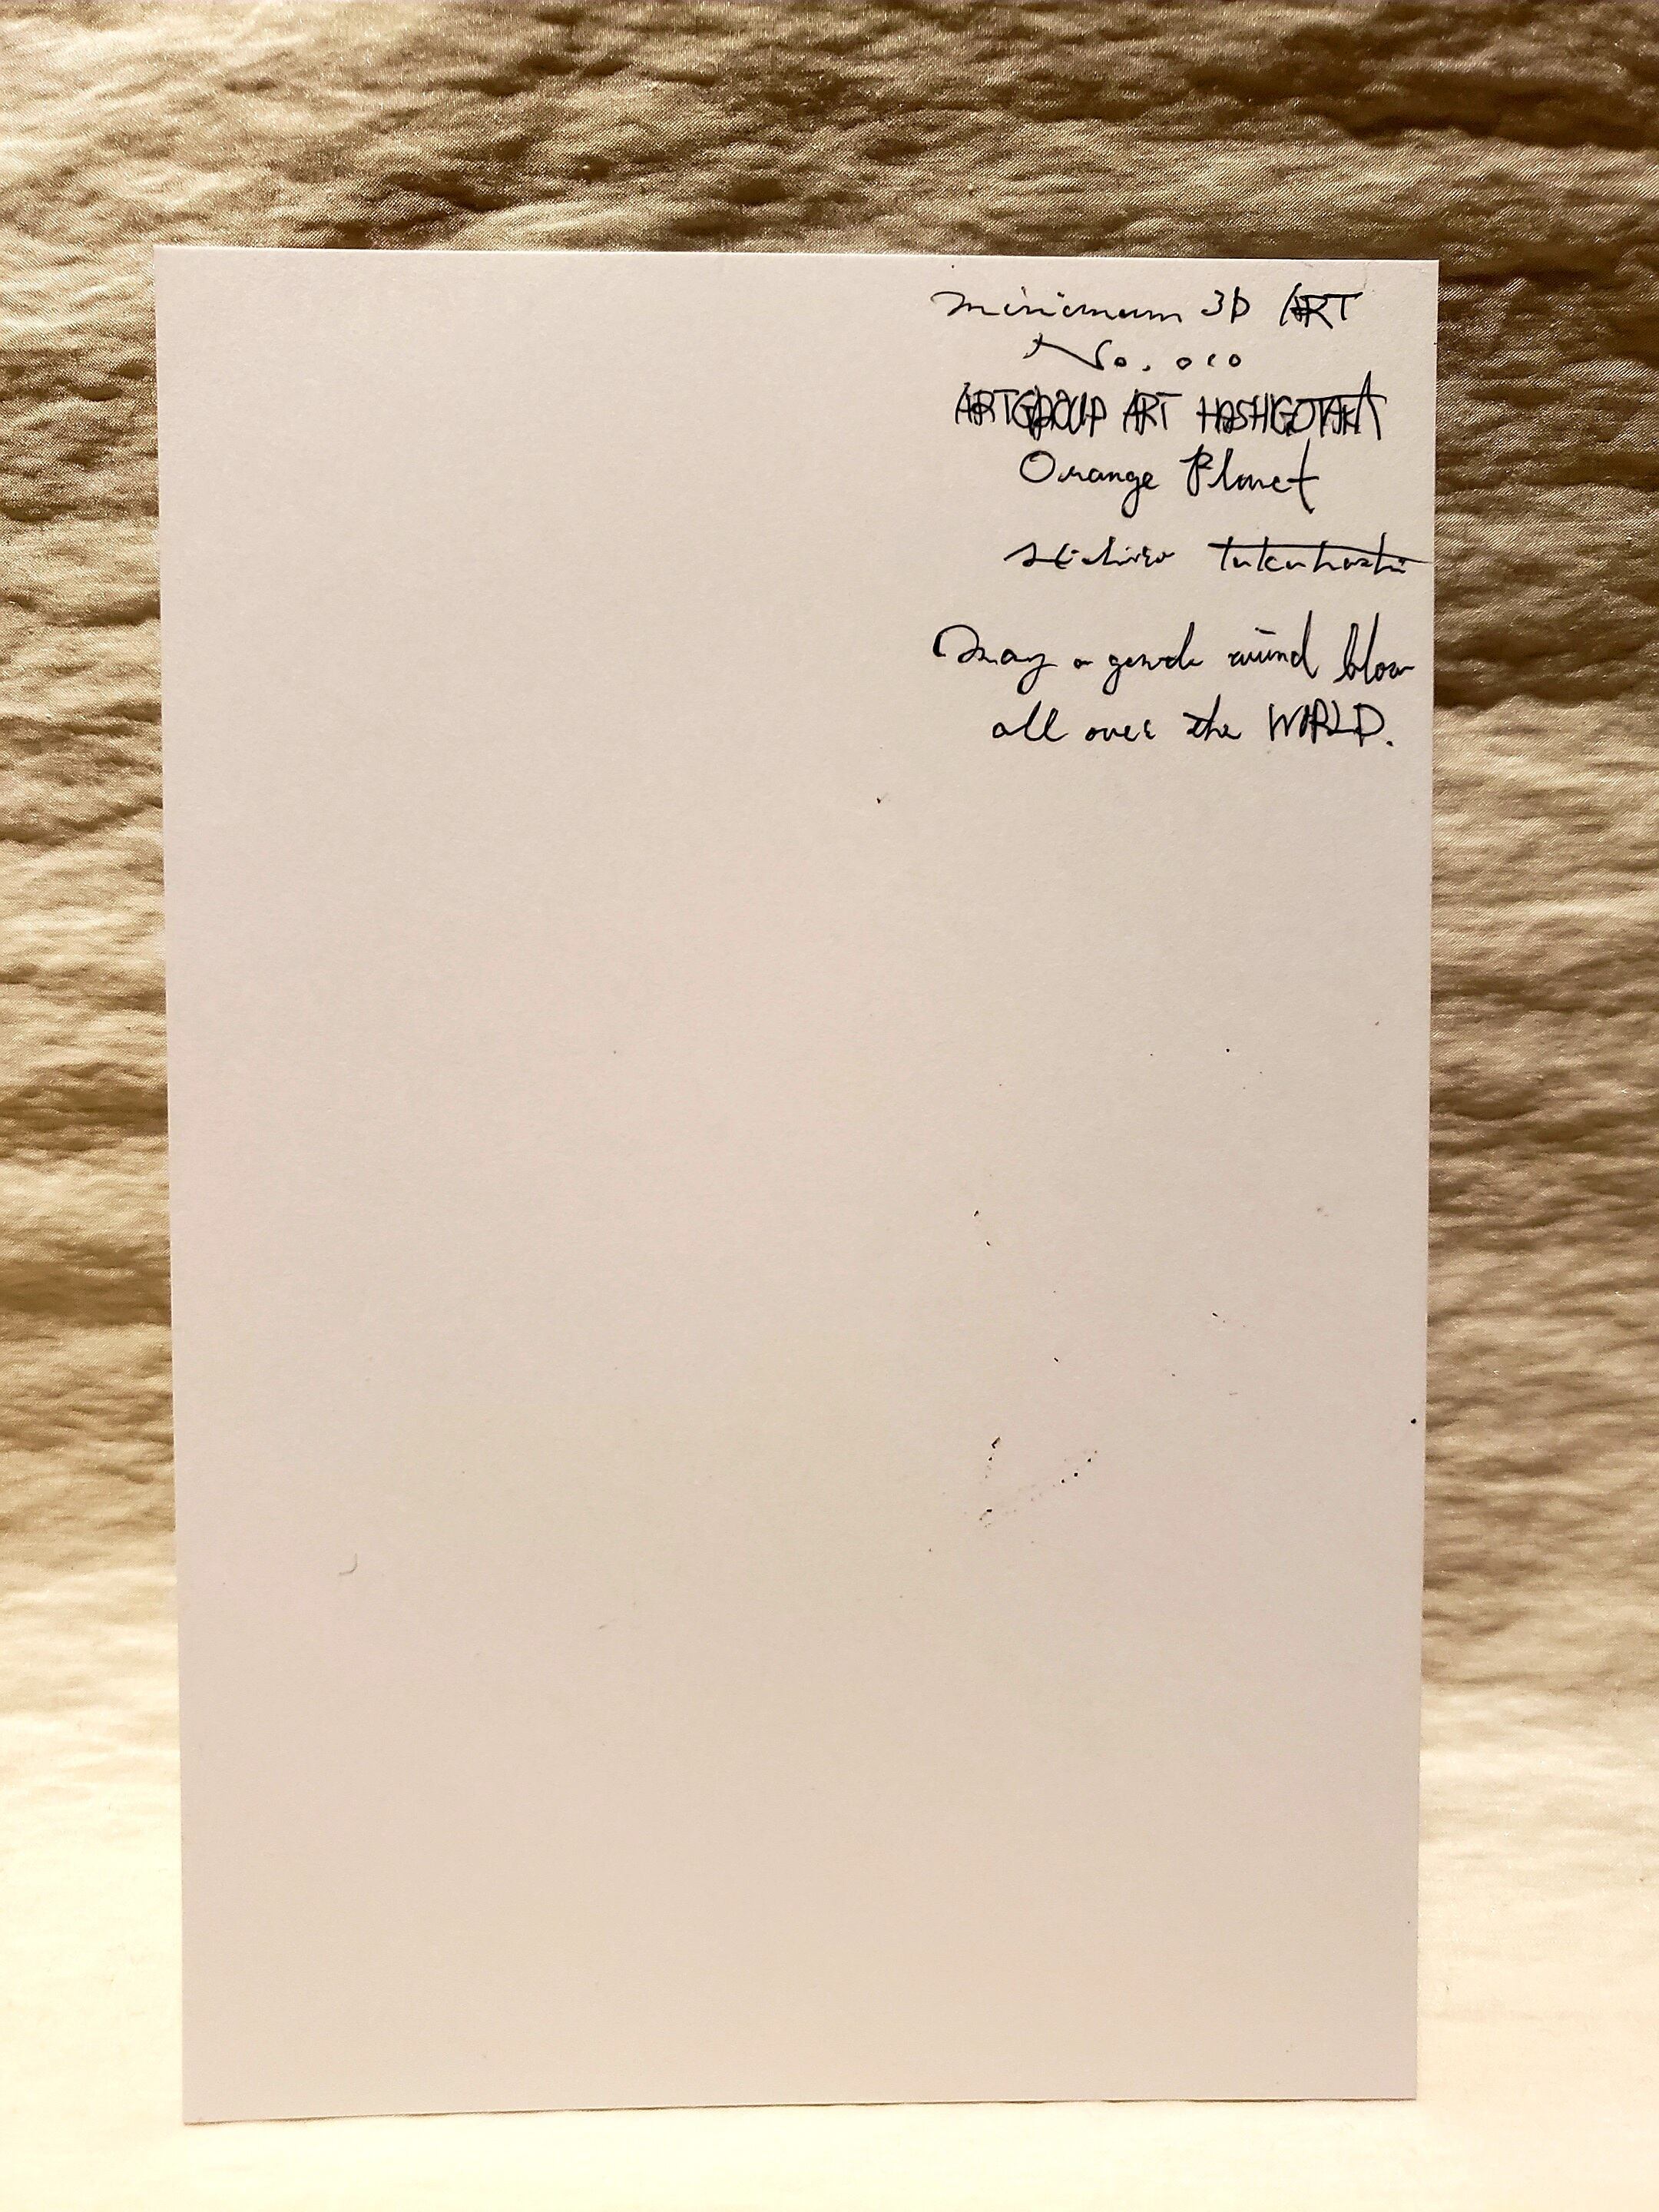 minimum 3D ART
No. 010
ARTGROUP ART HASHIGOTAKA
Orange Planet
takahashi
May a gentle wind blow
all over the WORLD.